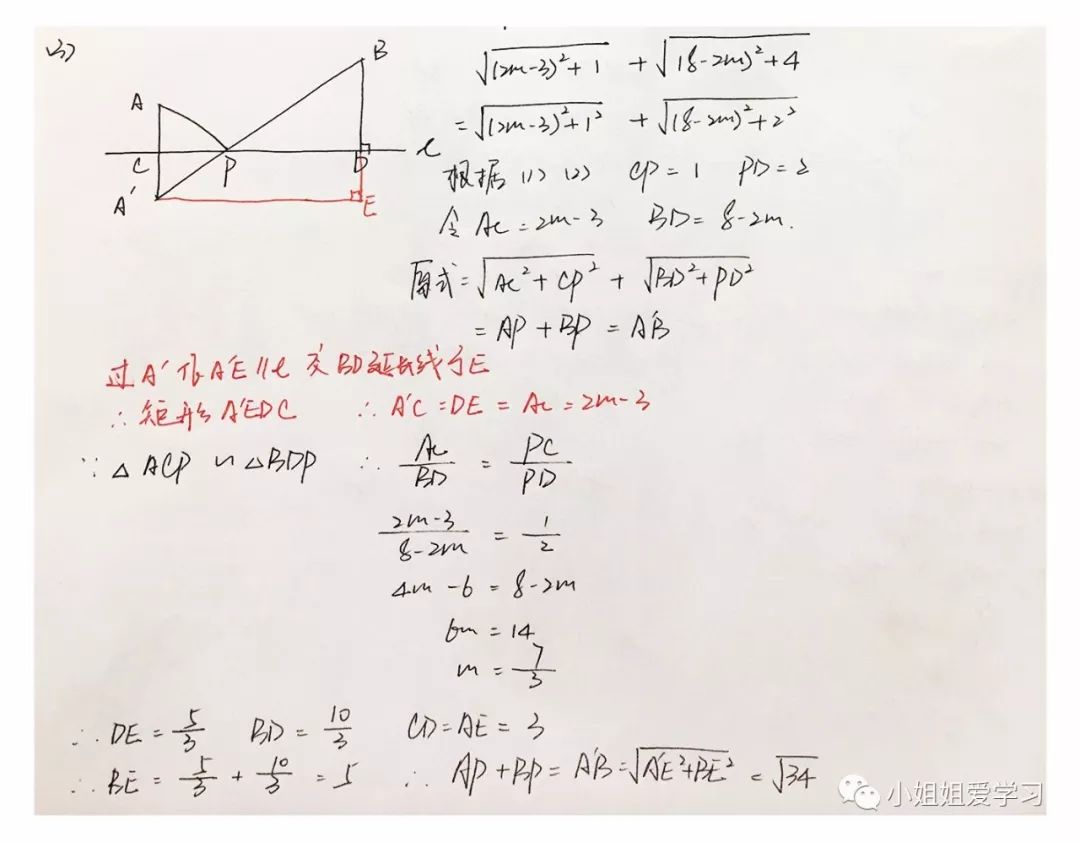 (3)
B
A
C
P
D
l
A′
E
√((2m-3)²+1) + √((8-2m)²+4)
= √((2m-3)²+1²) + √((8-2m)²+2²)
根据 (1) (2) CP = 1 PD = 2
令 AC = 2m-3 BD = 8-2m.
原式 = √(AC²+CP²) + √(BD²+PD²)
= AP + BP = A′B
过A′作A′E∥l 交BD延长线于E
∴ 矩形A′EDC ∴ A′C = DE = AC = 2m-3
∵ △ACP ∽ △BDP ∴ AC/BD = PC/PD
(2m-3)/(8-2m) = 1/2
4m-6 = 8-2m
6m = 14
m = 7/3
∴ DE = 5/3 BD = 10/3 CD = AE = 3
∴ BE = 5/3 + 10/3 = 5 ∴ AP + BP = A′B = √(A′E²+BE²) = √34
小姐姐爱学习